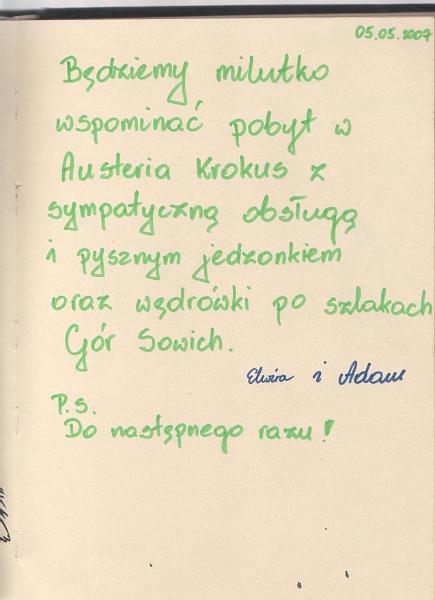 05.05.2007
Będziemy milutko
wspominać pobyt w
Austeria Krokus z
sympatyczną obsługą
i pysznym jedzonkiem
oraz wędrówki po szlakach
Gór Sowich.
Elwira i Adam
P.S.
Do następnego razu!